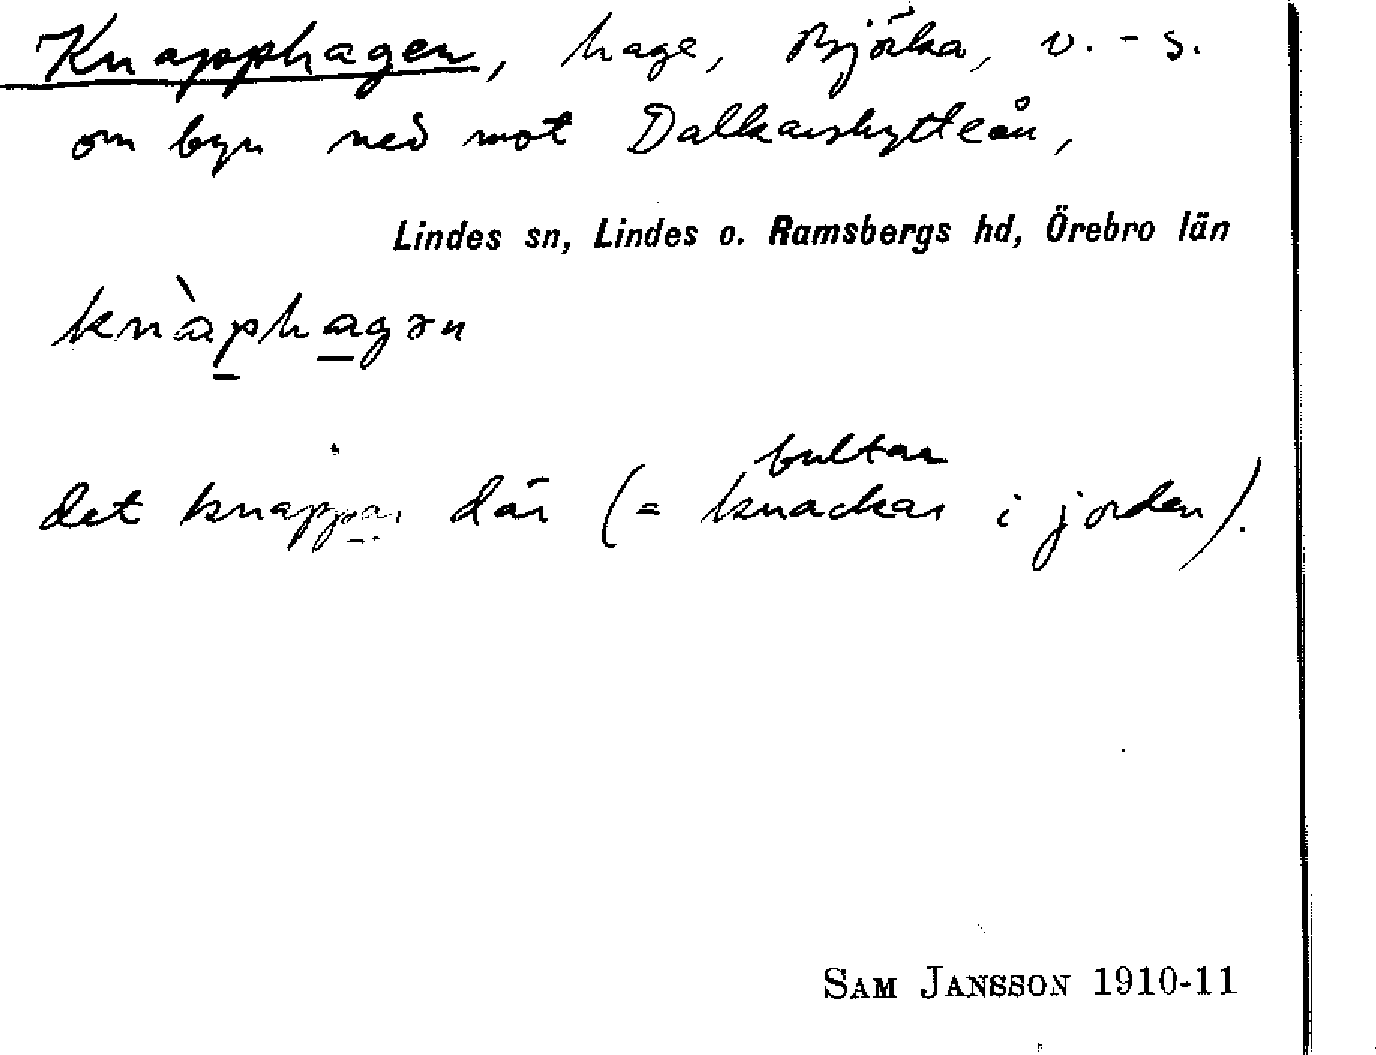 Knapphagen, hage, Björka, v.-s.
om byn ned mot Dalkarshytteån,
Lindes sn, Lindes o. Ramsbergs hd, Örebro län
knàphagən
bultar
det knappar där (= knackar i jorden).
SAM JANSSON 1910-11